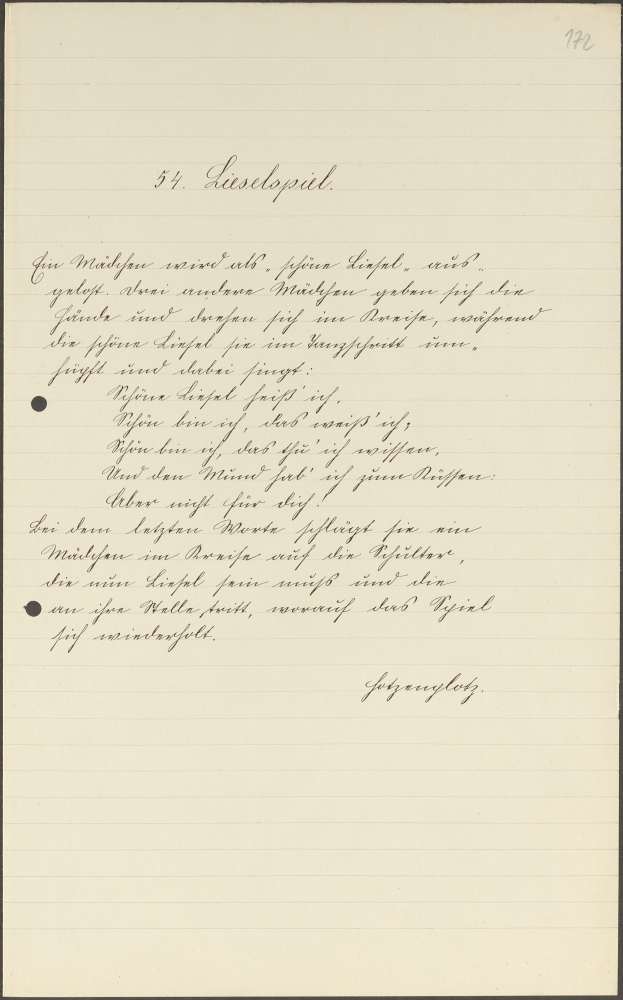 172
54. Lieselspiel.
Ein Mädchen wird als „schöne Liesel„ aus„
gelost. Drei andere Mädchen geben sich die
Hände und drehen sich im Kreise, während
die schöne Liesel sie im Tanzschritt um„
hüpft und dabei singt:
Schöne Liesel heiß' ich,
Schön bin ich, das weiß' ich;
Schön bin ich, das thu' ich wissen,
Und den Mund hab' ich zum Küssen:
Aber nicht für dich!
Bei dem letzten Worte schlägt sie ein
Mädchen im Kreise auf die Schulter,
die nun Liesel sein muß und die
an ihre Stelle tritt, worauf das Spiel
sich wiederholt.
Hotzenplotz.